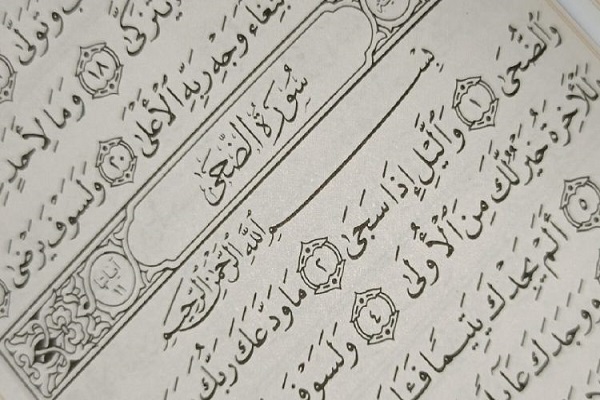 وَتَوَلَّىٰ
يَتَزَكَّىٰ ١٨ وَمَا لِأَحَدٍ
وَجْهِ رَبِّهِ ٱلْأَعْلَىٰ ٢٠ وَلَسَوْفَ يَرْضَىٰ
سُورَةُ ٱلضُّحَىٰ
بِسْمِ ٱللَّهِ ٱلرَّحْمَٰنِ ٱلرَّحِيمِ
وَٱلضُّحَىٰ ١ وَٱلَّيْلِ إِذَا سَجَىٰ ٢ مَا وَدَّعَكَ رَبُّكَ
وَلَلْءَاخِرَةُ خَيْرٌ لَّكَ مِنَ ٱلْأُولَىٰ ٤ وَلَسَوْفَ
٥ أَلَمْ يَجِدْكَ يَتِيمًا
وَوَجَدَكَ